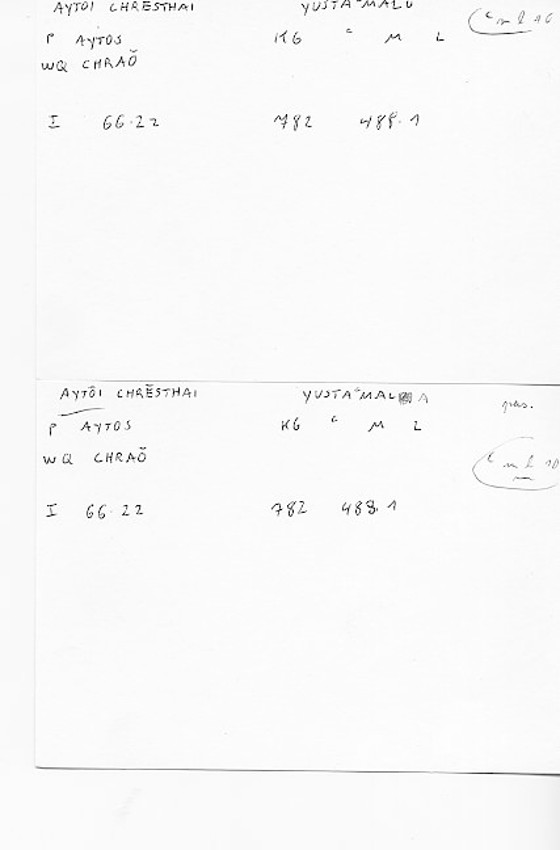 AYTŌI CHRĒSTHAI YUSTAʿMALU
P AYTOS KG ʿ M L ʿ m l 10
WQ CHRAŌ
I 66.22 782 489.1
AYTŌI CHRĒSTHAI YUSTAʿMAL A pas.
P AYTOS KG ʿ M L
WQ CHRAŌ ʿ m l 10
I 66.22 782 489.1